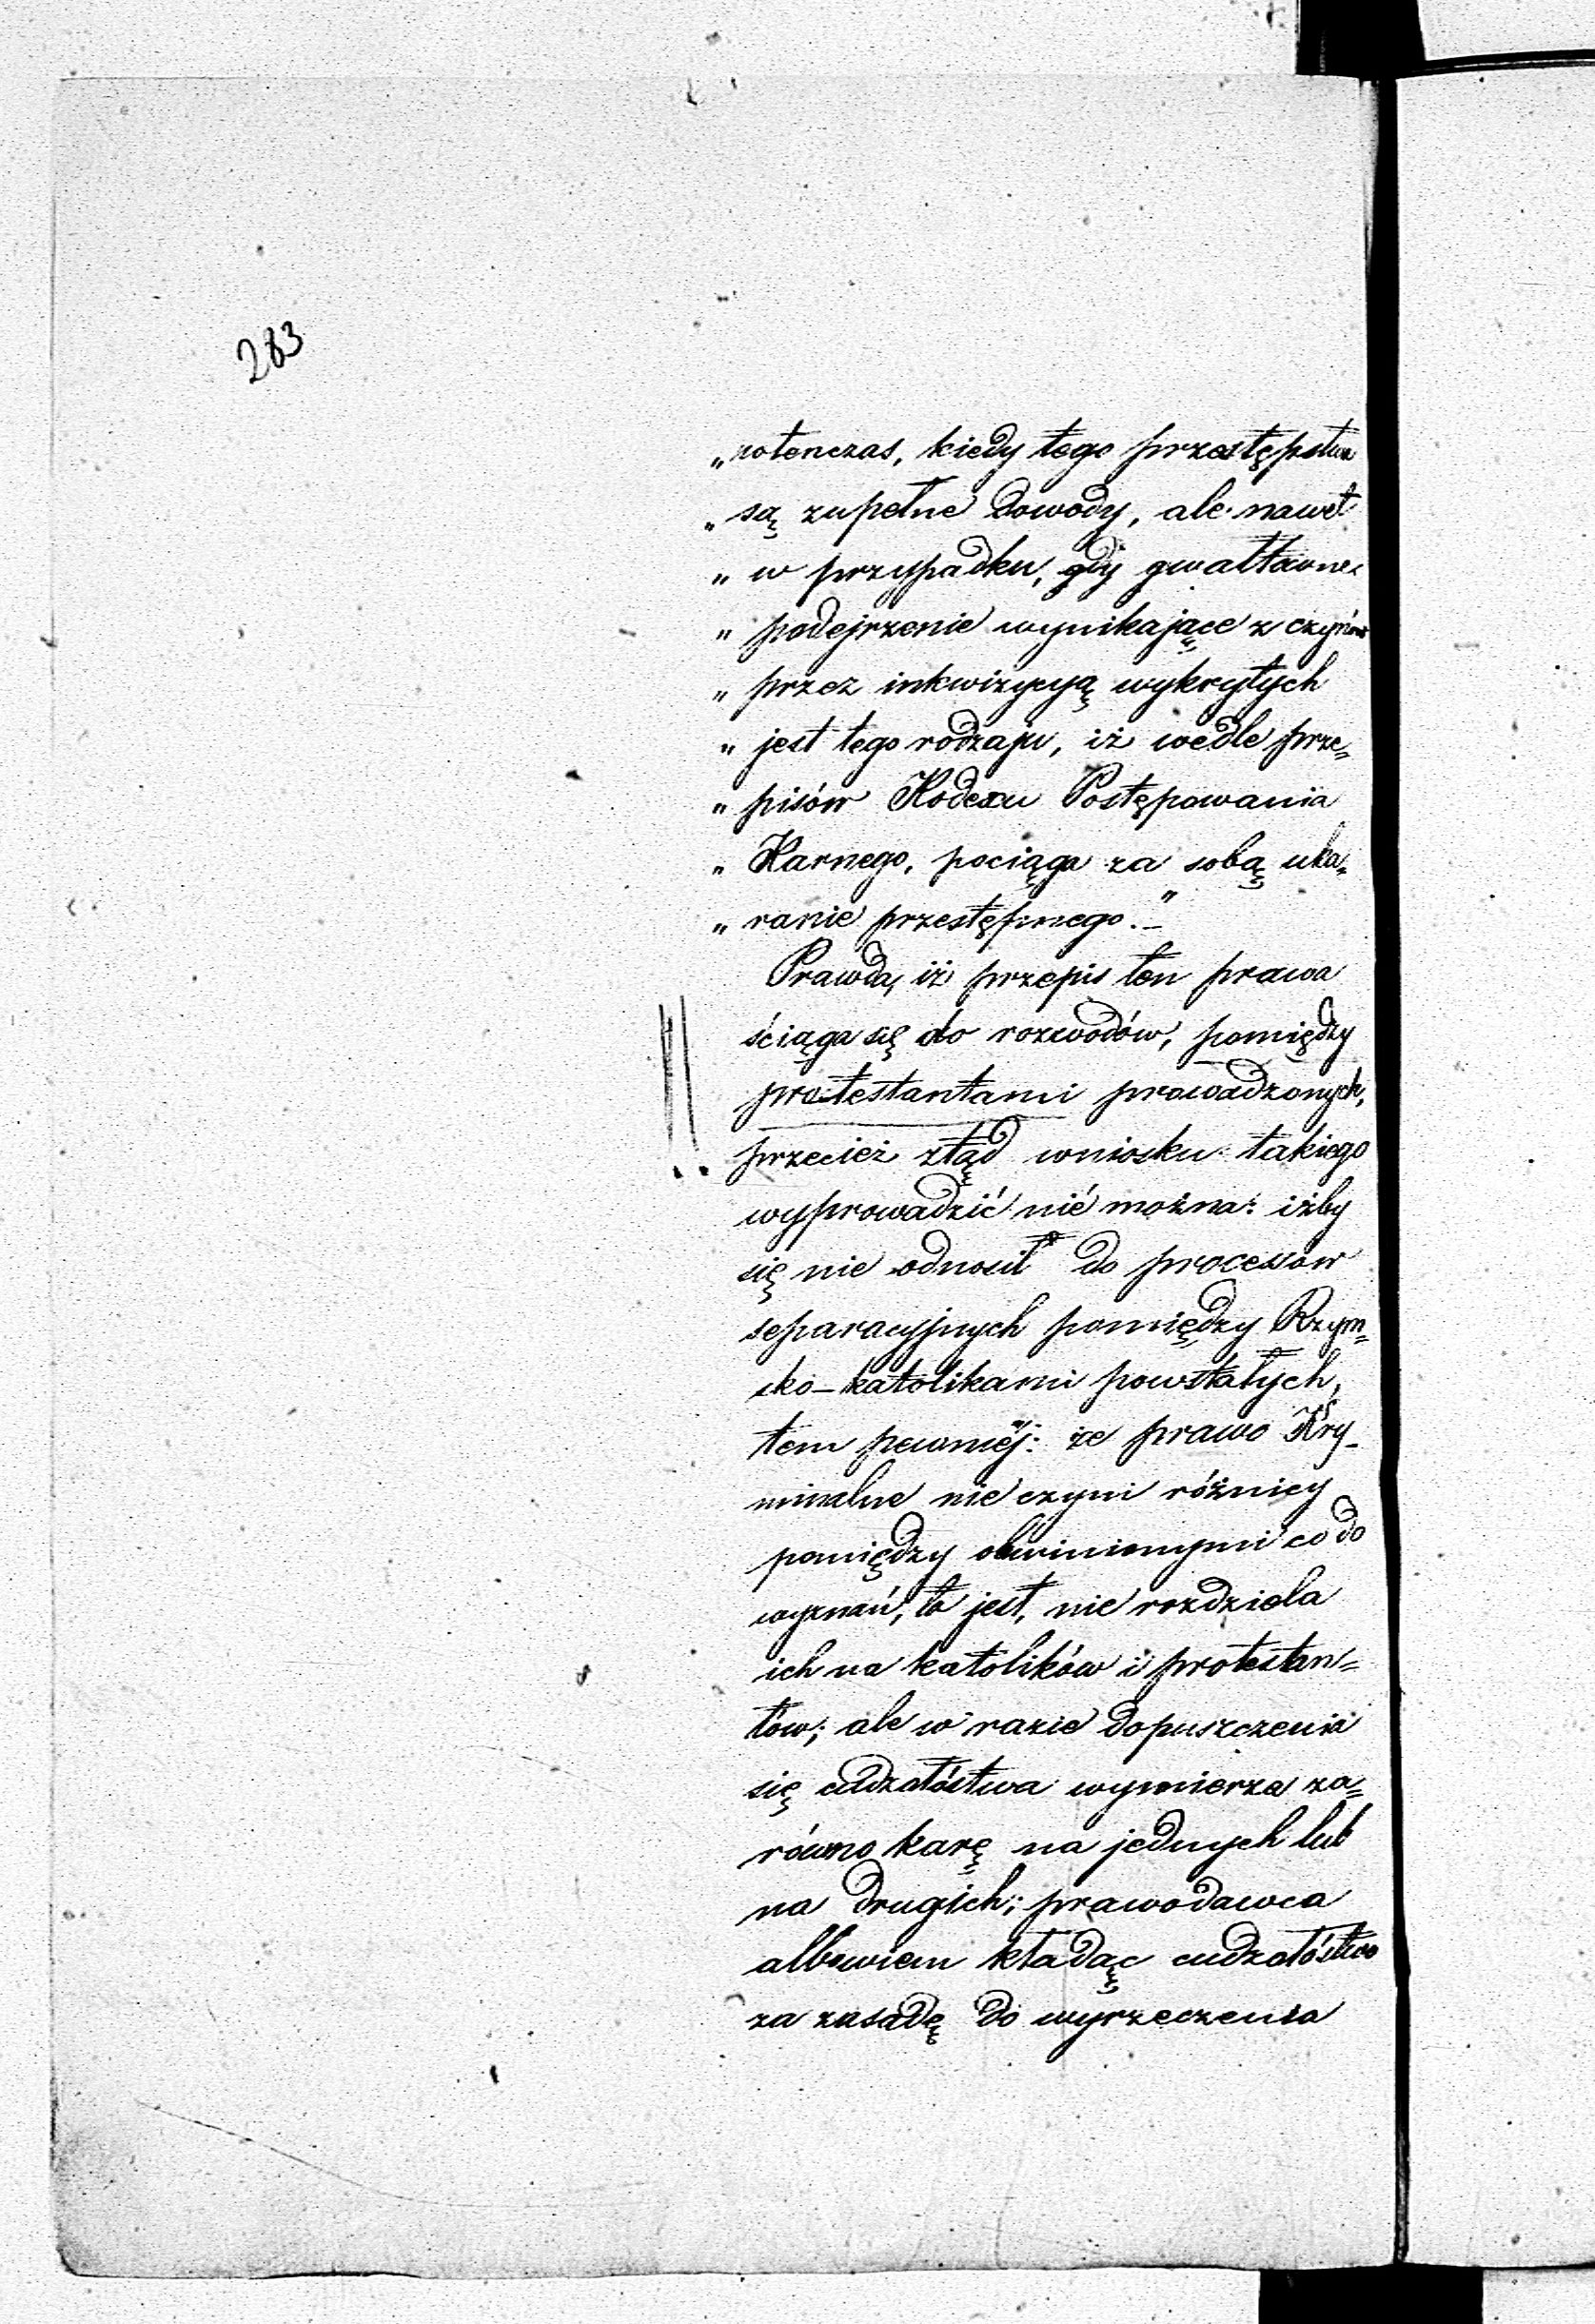 283
„wotenczas, kiedy tego przestępstwa
„są zupełne dowody, ale nawet
„w przypadku, gdy gwałtowne
„podejrzenie wynikające z czynów
„przez inkwizycyą wykrytych
„jest tego rodzaju, iż wedle prze=
„pisów Kodexu Postępowania
„Karnego, pociąga za sobą uka=
„ranie przestępnego.–"
Prawda, iż przepis ten prawa
ściąga się do rozwodów, pomiędzy
protestantami prowadzonych,
przecież ztąd wniosku takiego
wyprowadzić nie można: iżby
się nie odnosił do processów
separacyjnych pomiędzy Rzym=
sko–katolikami powstałych,
tem pewniéj: że prawo Kry–
minalne nie czyni różnicy
pomiędzy obwinionymi co do
wyznań, to jest, nie rozdziela
ich na katolików i protestan=
tów; ale w razie dopuszczenia
się cudzołóstwa wymierza za=
równo karę na jednych lub
na drugich; prawodawca
albowiem kładąc cudzołóstwo
za zasadę do wyrzeczenia